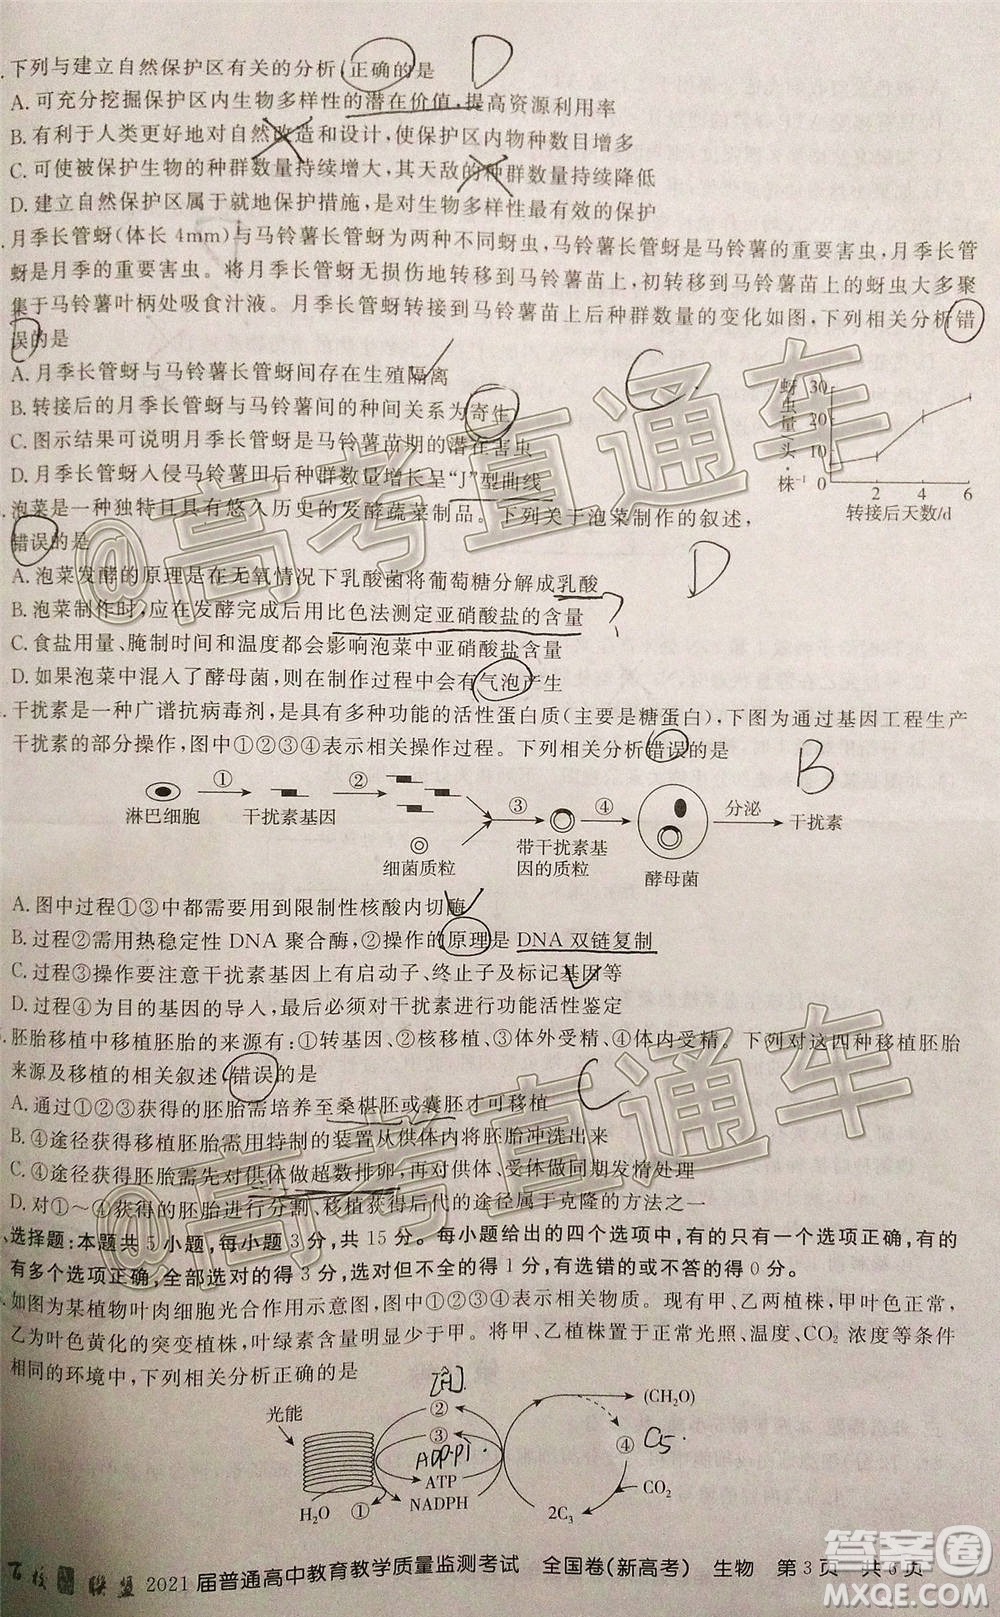 下列与建立自然保护区有关的分析正确的是 D
A.可充分挖掘保护区内生物多样性的潜在价值,提高资源利用率
B.有利于人类更好地对自然改造和设计,使保护区内物种数目增多
C.可使被保护生物的种群数量持续增大,其天敌的种群数量持续降低
D.建立自然保护区属于就地保护措施,是对生物多样性最有效的保护
月季长管蚜(体长4mm)与马铃薯长管蚜为两种不同蚜虫,马铃薯长管蚜是马铃薯的重要害虫,月季长管
蚜是月季的重要害虫。将月季长管蚜无损伤地转移到马铃薯苗上,初转移到马铃薯苗上的蚜虫大多聚
集于马铃薯叶柄处吸食汁液。月季长管蚜转接到马铃薯苗上后种群数量的变化如图,下列相关分析错
误的是
A.月季长管蚜与马铃薯长管蚜间存在生殖隔离
B.转接后的月季长管蚜与马铃薯间的种间关系为寄生
C.图示结果可说明月季长管蚜是马铃薯苗期的潜在害虫
D.月季长管蚜入侵马铃薯田后种群数量增长呈“J”型曲线
蚜虫量/头·株⁻¹
30
20
10
0
2 4 6
转接后天数/d
泡菜是一种独特且具有悠久历史的发酵蔬菜制品。下列关于泡菜制作的叙述,
错误的是 D
A.泡菜发酵的原理是在无氧情况下乳酸菌将葡萄糖分解成乳酸
B.泡菜制作时,应在发酵完成后用比色法测定亚硝酸盐的含量 ?
C.食盐用量、腌制时间和温度都会影响泡菜中亚硝酸盐含量
D.如果泡菜中混入了酵母菌,则在制作过程中会有气泡产生
干扰素是一种广谱抗病毒剂,是具有多种功能的活性蛋白质(主要是糖蛋白),下图为通过基因工程生产
干扰素的部分操作,图中①②③④表示相关操作过程。下列相关分析错误的是 B
① ② ③ ④ 分泌
淋巴细胞 干扰素基因 干扰素
细菌质粒
带干扰素基
因的质粒
酵母菌
A.图中过程①③中都需要用到限制性核酸内切酶
B.过程②需用热稳定性DNA聚合酶,②操作的原理是DNA双链复制
C.过程③操作要注意干扰素基因上有启动子、终止子及标记基因等
D.过程④为目的基因的导入,最后必须对干扰素进行功能活性鉴定
胚胎移植中移植胚胎的来源有:①转基因、②核移植、③体外受精、④体内受精。下列对这四种移植胚胎
来源及移植的相关叙述错误的是 C
A.①~③获得的胚胎需培养至桑椹胚或囊胚才可移植
B.④途径获得移植胚胎需用特制的装置从供体内将胚胎冲洗出来
C.④途径获得胚胎需先对供体做超数排卵,再对供体、受体做同期发情处理
D.对①~④获得的胚胎进行分割、移植获得后代的途径属于克隆的方法之一
选择题:本题共5小题,每小题3分,共15分。每小题给出的四个选项中,有的只有一个选项正确,
有多个选项正确,全部选对的得3分,选对但不全的得1分,有选错的或不答的得0分。
如图为某植物叶肉细胞光合作用示意图,其中①②③④表示相关物质。现有甲、乙两植株,甲叶色正常,
乙为叶黄化的突变植株,叶绿素含量明显少于甲。将甲、乙植株置于正常光照、温度、CO₂浓度等条件
相同的环境中,下列相关分析正确的是
[H]
光能 ② (CH₂O)
③ ④ C5
ADP.Pi
ATP CO₂
H₂O ① NADPH 2C₃
百校联盟 2021届普通高中教育教学质量监测考试 全国卷(新高考) 生物 第3页 共6页
@高考直通车
@高考直通车
答案圈
MXQE.COM